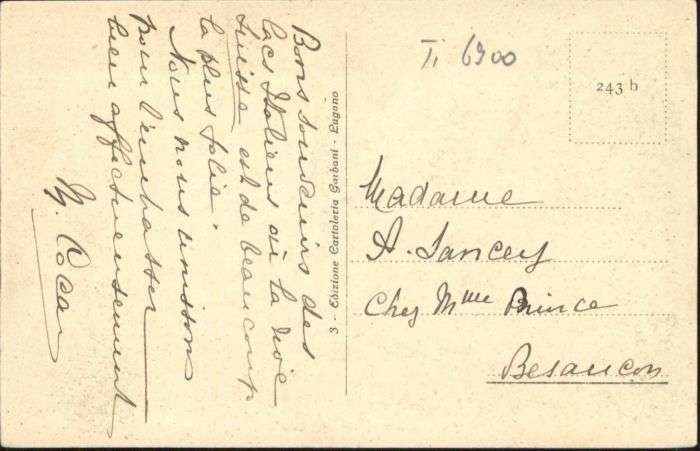 Bons souvenirs des
lacs Italiens où la rive
suisse est de beaucoup
la plus jolie.
Nous nous unissons
pour t'embrasser
bien affectueusement
M.
3 - Edizione Cartoleria Garbani - Lugano
Ti 6900
243 b
Madame
A. Sancey
Chez Mme Prince
Besançon